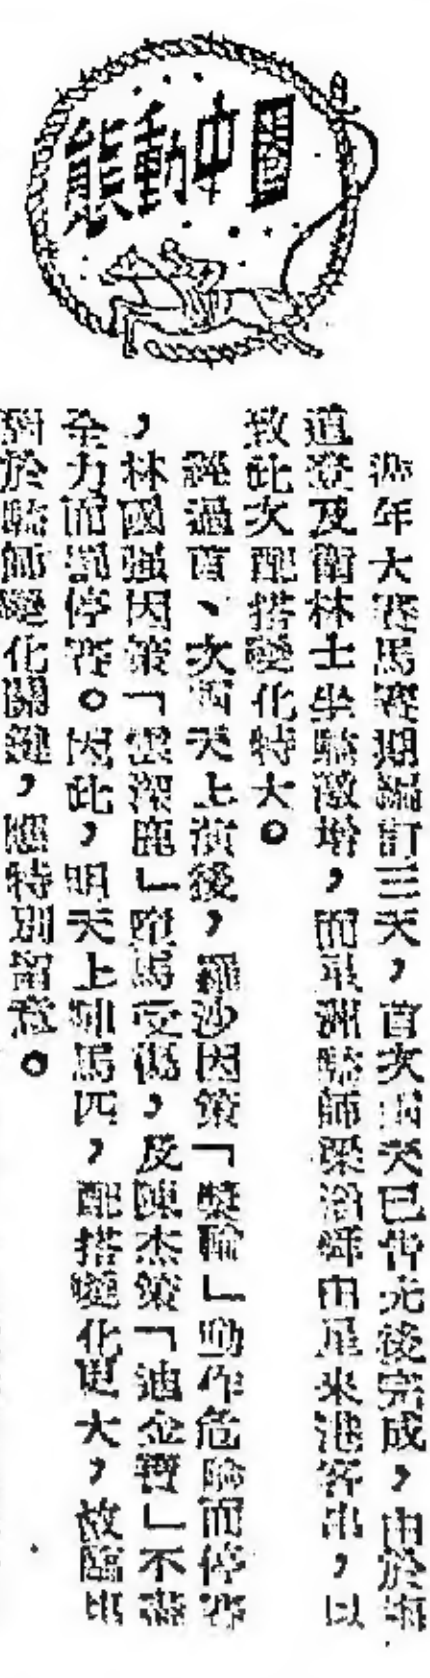 圍中動態
年大賽馬賽期編訂三天，首次兩天已告先後完成，由於
道登及衛林士坐騎激增，而星洲騎師梁浴輝由星來港客串，以
致此次配搭變化特大。
經過首、次兩天上演後，羅沙因策「獎輪」動作危險而停賽
，林國強因策「雲深鹿」墮馬受傷，反陳杰策「迪金寶」不盡
全力而罰停賽。因此，明天上陣馬匹，配搭變化更大，故臨場
對於騎師變化關鍵，應特別留意。